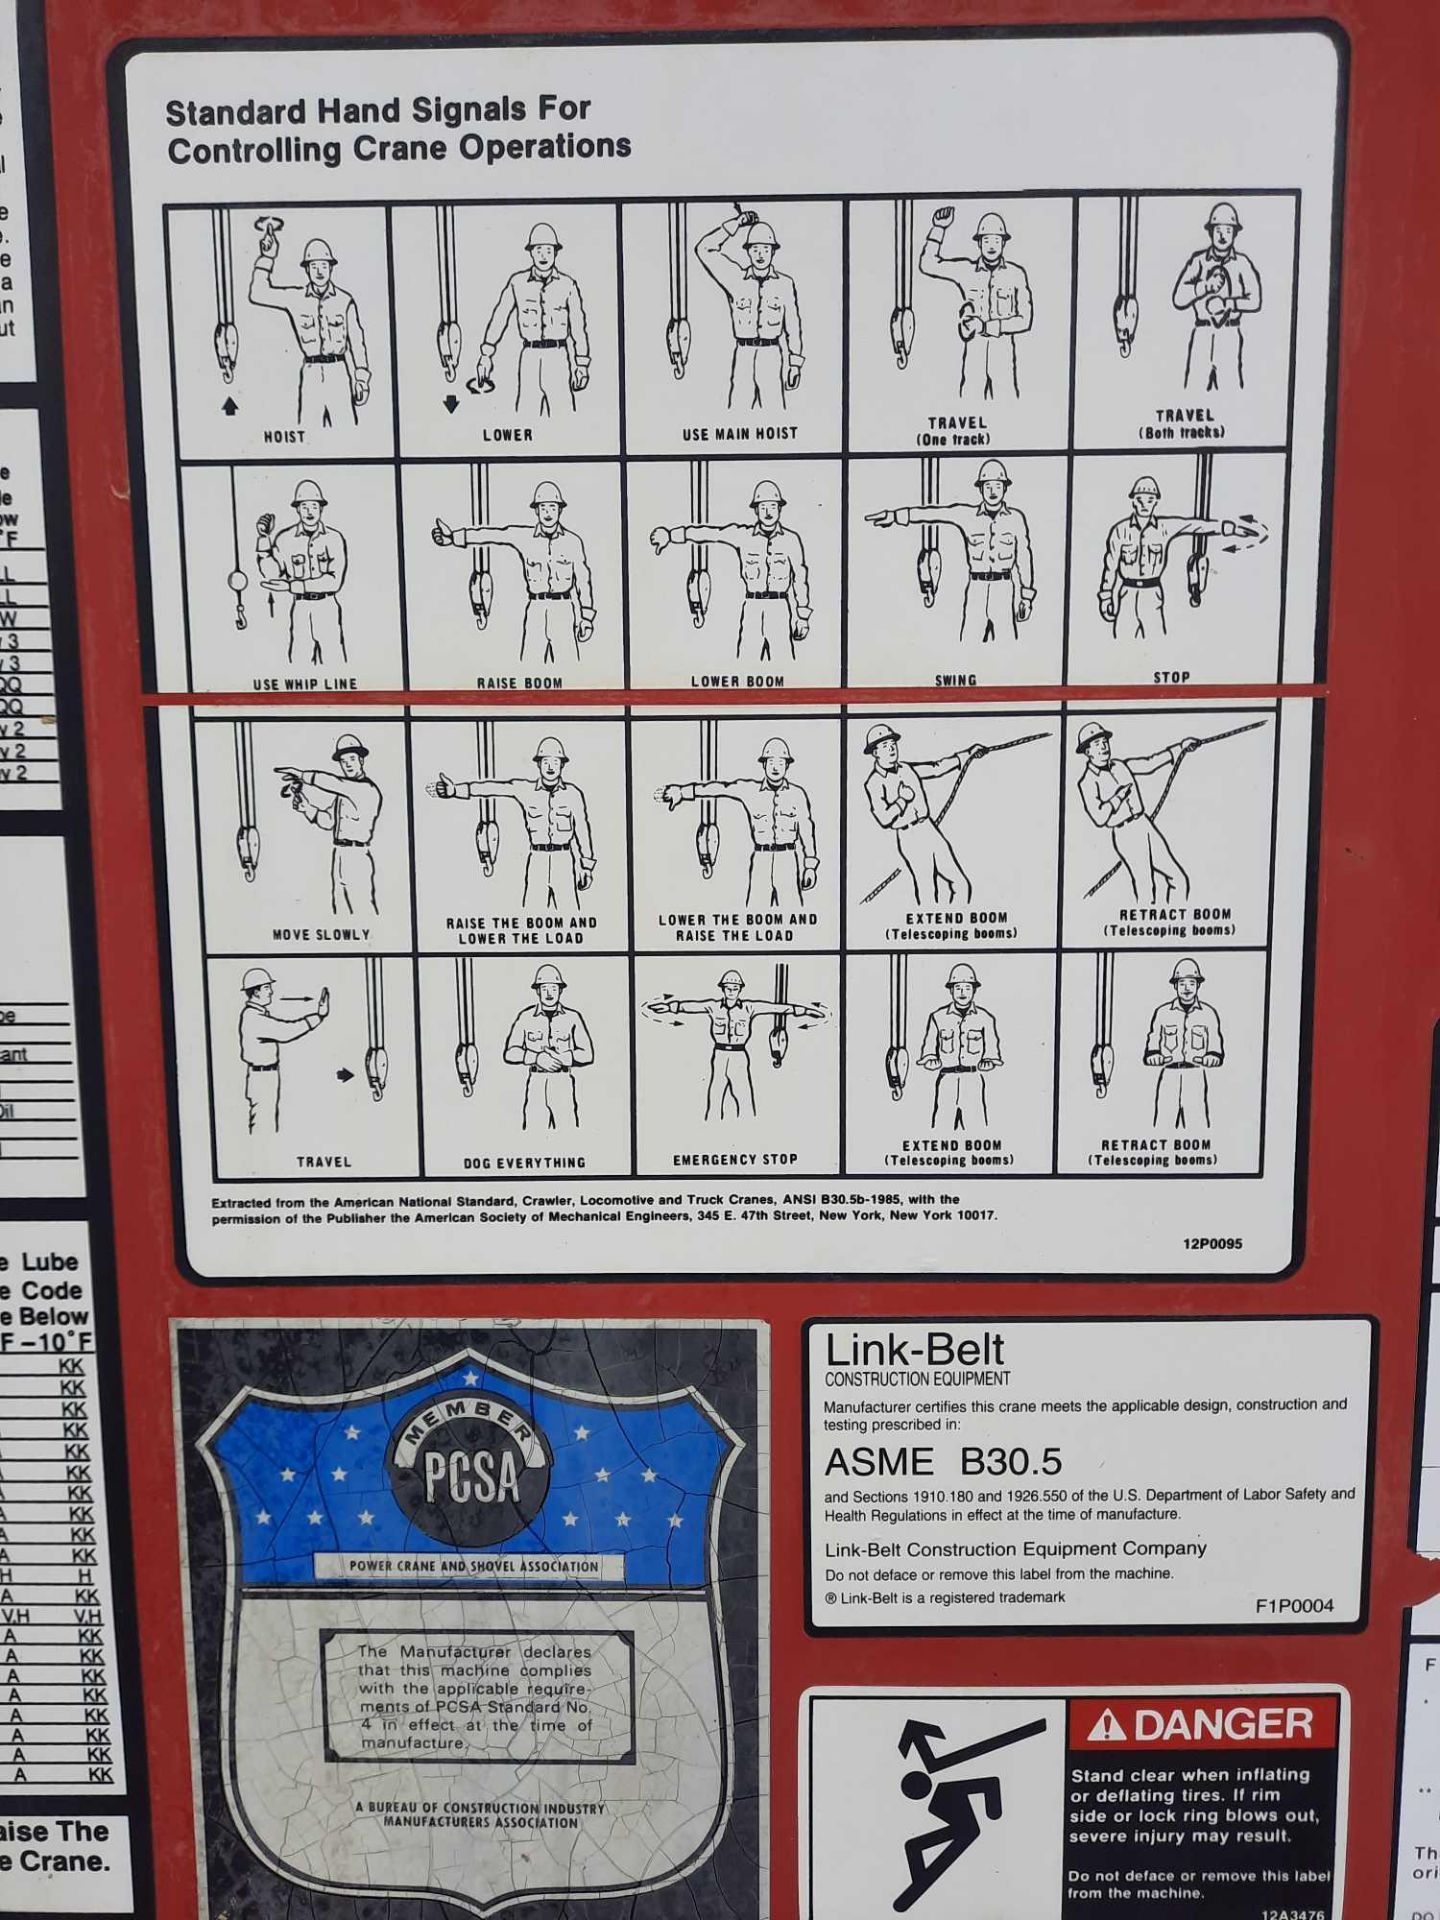 Standard Hand Signals For
Controlling Crane Operations
HOIST
LOWER
USE MAIN HOIST
TRAVEL
(One track)
TRAVEL
(Both tracks)
USE WHIP LINE
RAISE BOOM
LOWER BOOM
SWING
STOP
MOVE SLOWLY
RAISE THE BOOM AND
LOWER THE LOAD
LOWER THE BOOM AND
RAISE THE LOAD
EXTEND BOOM
(Telescoping booms)
RETRACT BOOM
(Telescoping booms)
TRAVEL
DOG EVERYTHING
EMERGENCY STOP
EXTEND BOOM
(Telescoping booms)
RETRACT BOOM
(Telescoping booms)
Extracted from the American National Standard, Crawler, Locomotive and Truck Cranes, ANSI B30.5b-1985, with the
permission of the Publisher the American Society of Mechanical Engineers, 345 E. 47th Street, New York, New York 10017.
12P0095
MEMBER
PCSA
POWER CRANE AND SHOVEL ASSOCIATION
The Manufacturer declares
that this machine complies
with the applicable require-
ments of PCSA Standard No.
4 in effect at the time of
manufacture.
A BUREAU OF CONSTRUCTION INDUSTRY
MANUFACTURERS ASSOCIATION
Link-Belt
CONSTRUCTION EQUIPMENT
Manufacturer certifies this crane meets the applicable design, construction and
testing prescribed in:
ASME B30.5
and Sections 1910.180 and 1926.550 of the U.S. Department of Labor Safety and
Health Regulations in effect at the time of manufacture.
Link-Belt Construction Equipment Company
Do not deface or remove this label from the machine.
® Link-Belt is a registered trademark
F1P0004
DANGER
Stand clear when inflating
or deflating tires. If rim
side or lock ring blows out,
severe injury may result.
Do not deface or remove this label
from the machine.
12A3476
e Lube
e Code
e Below
F -10°F
KK
KK
KK
KK
KK
KK
KK
KK
KK
KK
H H
A KK
V,H V,H
A KK
A KK
A KK
A KK
A KK
A KK
A KK
A KK
aise The
e Crane.